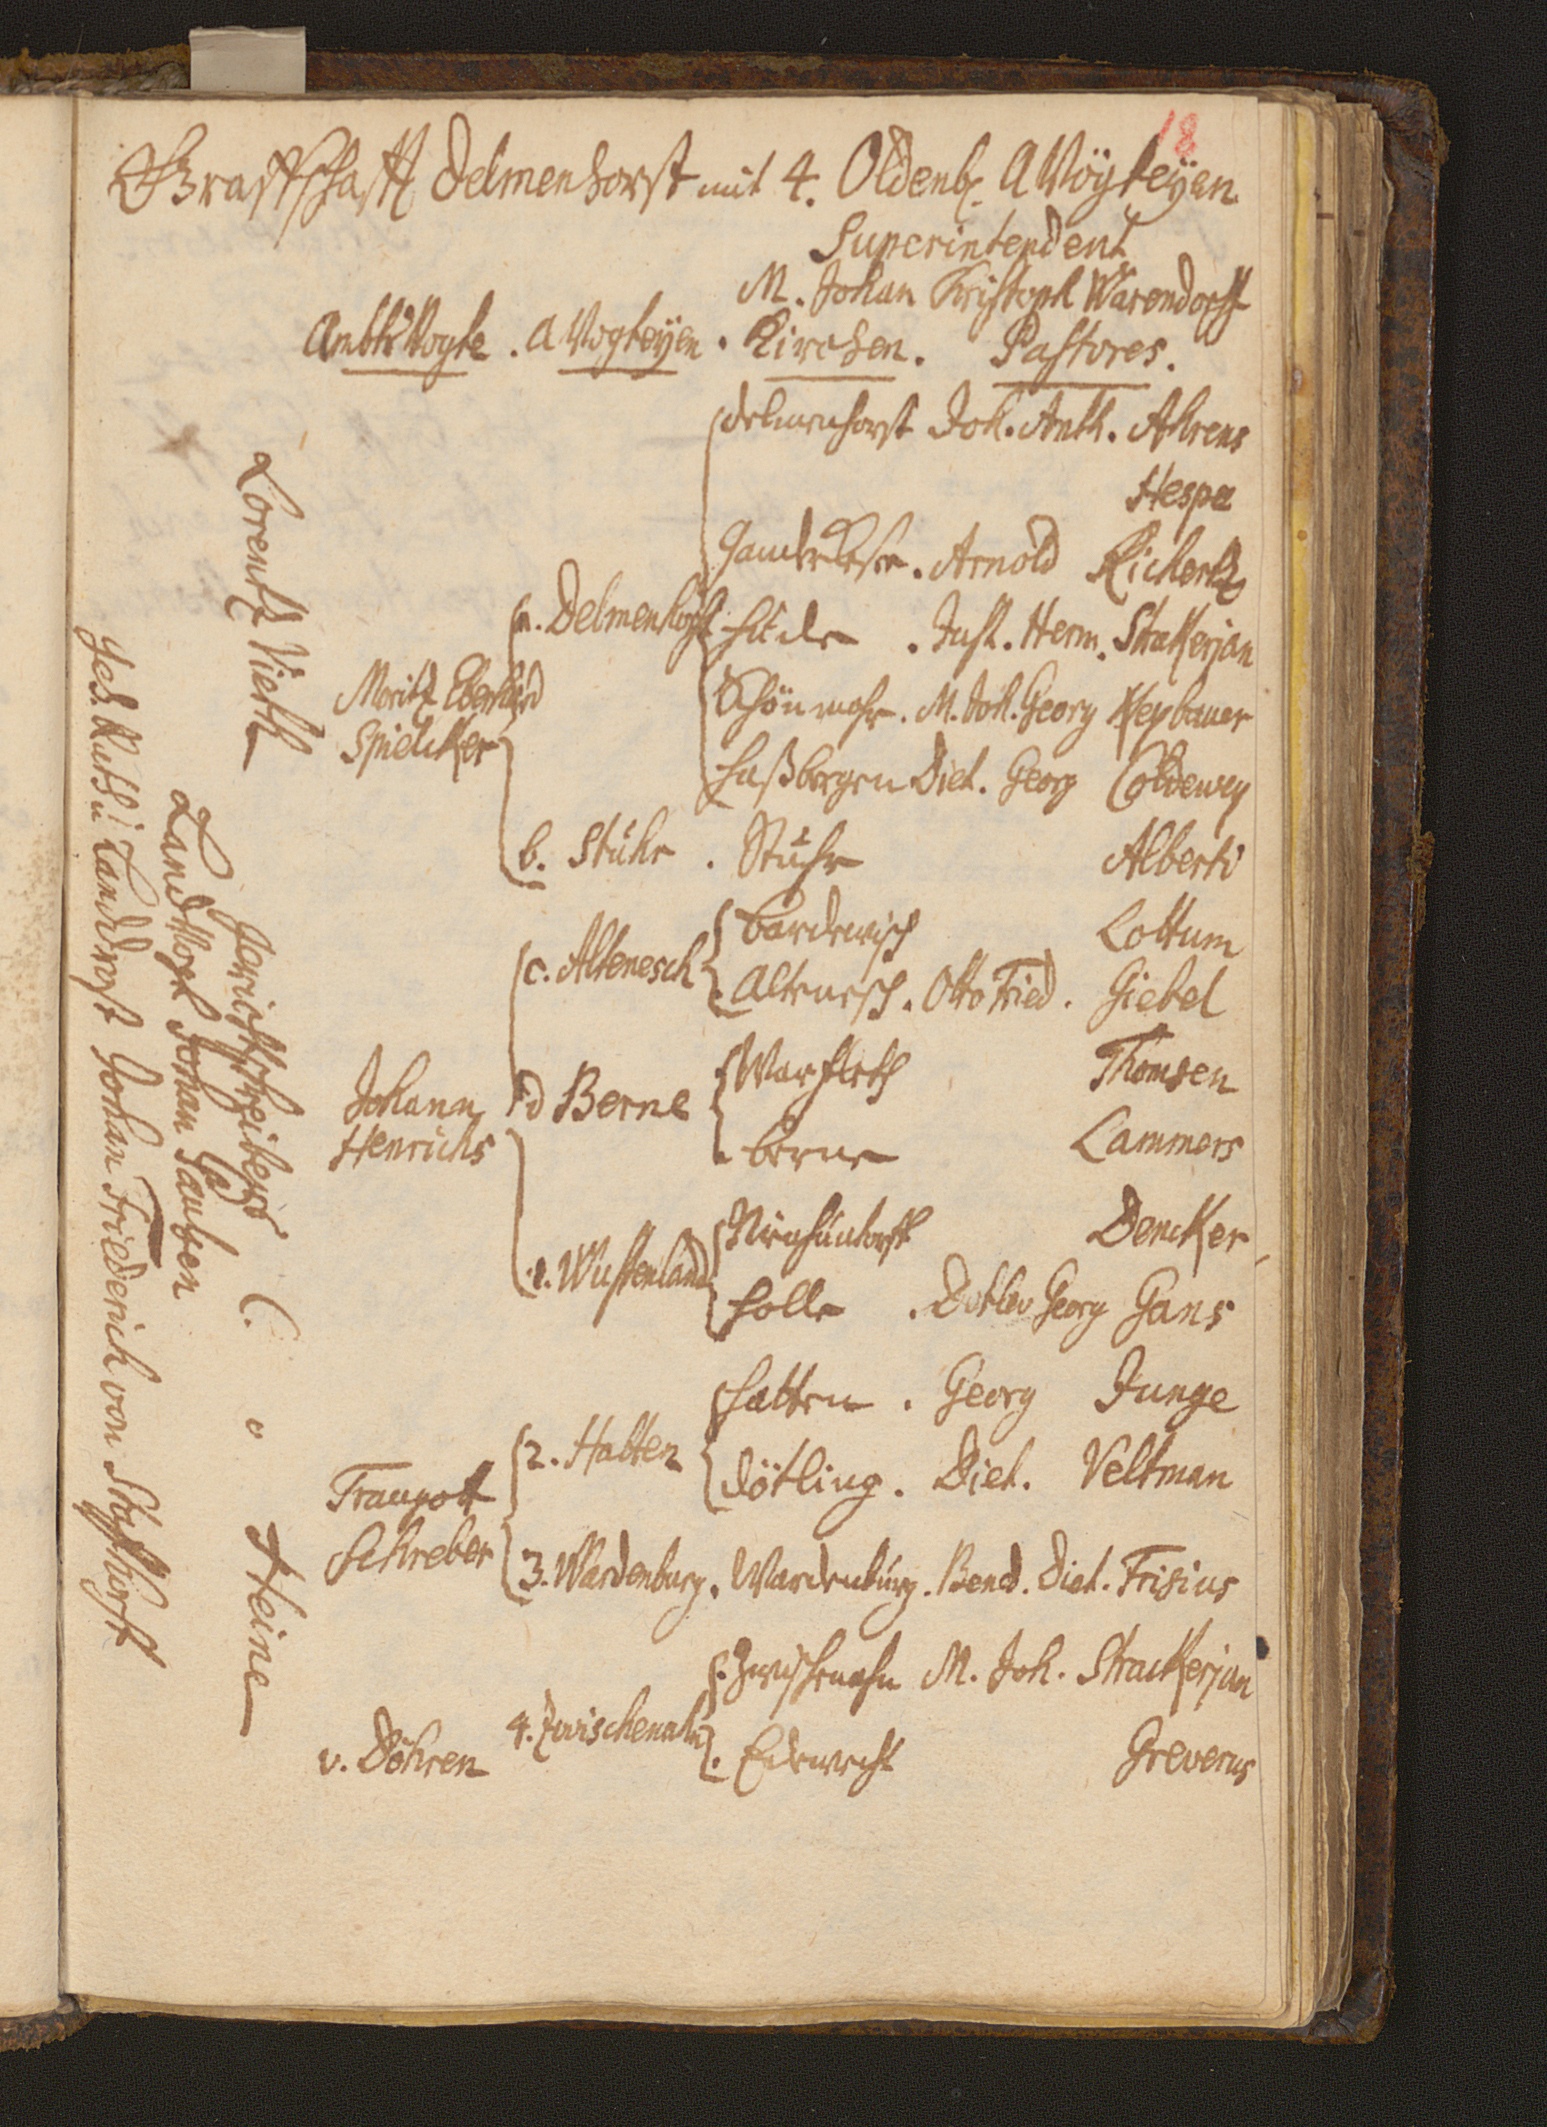 18
Graffschafft Delmenhorst mit 4. Oldenb. AVögteÿen
Superintendent
M. Johan Christoph Warendorff
AmbtsVogte . AVogteÿen . Kirchen . Pastores .
Delmenhorst Joh. Anth. Ahrens
Hespe
Ganderkese . Arnold Richertz
a. Delmenhorst Hude . Just. Herm. Strackerjan
Moritz Eberhard Schönmohr . M. Joh. Georg Neybauer
Spiecker Haßbergen Diet. Georg Coldewey
b. Stuhr . Stuhr Alberti
Bardewisch Lottum
c. Altenesch Altenesch . Otto Fried . Giebel
Warfleth Thomsen
Johann d Berne
Henrichs Berne Lammers
Nienhuntorff Dencker
e. Wustenland Holle . Detlev Georg Gans
Hatten . Georg Junge
2. Hatten
Traugott Dötling . Diet. Veltman
Schreber 3. Wardenburg . Wardenburg . Bened. Diet. Frisius
Zwischenahn M. Joh. Strackerjan
4. Zwischenahn
v. Döhren Edewecht Greverus
Lorentz Vieth
Gerichtschreiber C. Heine
LandVogt Johan Tauben
Geh. Rath u. Landdrost Johan Friederich von